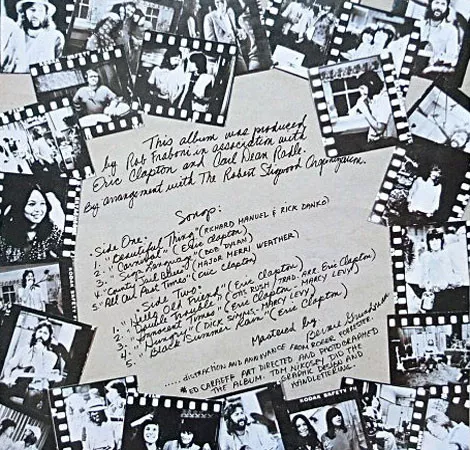 This album was produced
by Rob Fraboni in association with
Eric Clapton and Carl Dean Radle.
By arrangement with The Robert Stigwood Organization.
Songs:
Side One.
1. "Beautiful Thing" (RICHARD MANUEL & RICK DANKO)
2. "Carnival" (Eric Clapton)
3. "Sign Language" (BOB DYLAN)
4. "County Jail Blues" (MAJOR MERRI WEATHER)
5. "All Our Past Times" (Eric Clapton)
Side Two.
1. "Hello Old Friend" (Eric Clapton)
2. "Double Trouble" (OTIS RUSH / TRAD. ARR. Eric Clapton)
3. "Innocent Times" (Eric Clapton, MARCY LEVY)
4. "Hungry" (DICK SIMMS, MARCY LEVY)
5. "Black Summer Rain" (Eric Clapton)
Mastered by Bernie Grundman
..... DISTRACTION AND ANNOYANCE FROM ROGER FORRESTER.
ED CARAEFF ART DIRECTED AND PHOTOGRAPHED
THE ALBUM. TIM NIKOSEY DID THE
GRAPHIC DESIGN AND
HANDLETTERING.
KODAK SAFETY